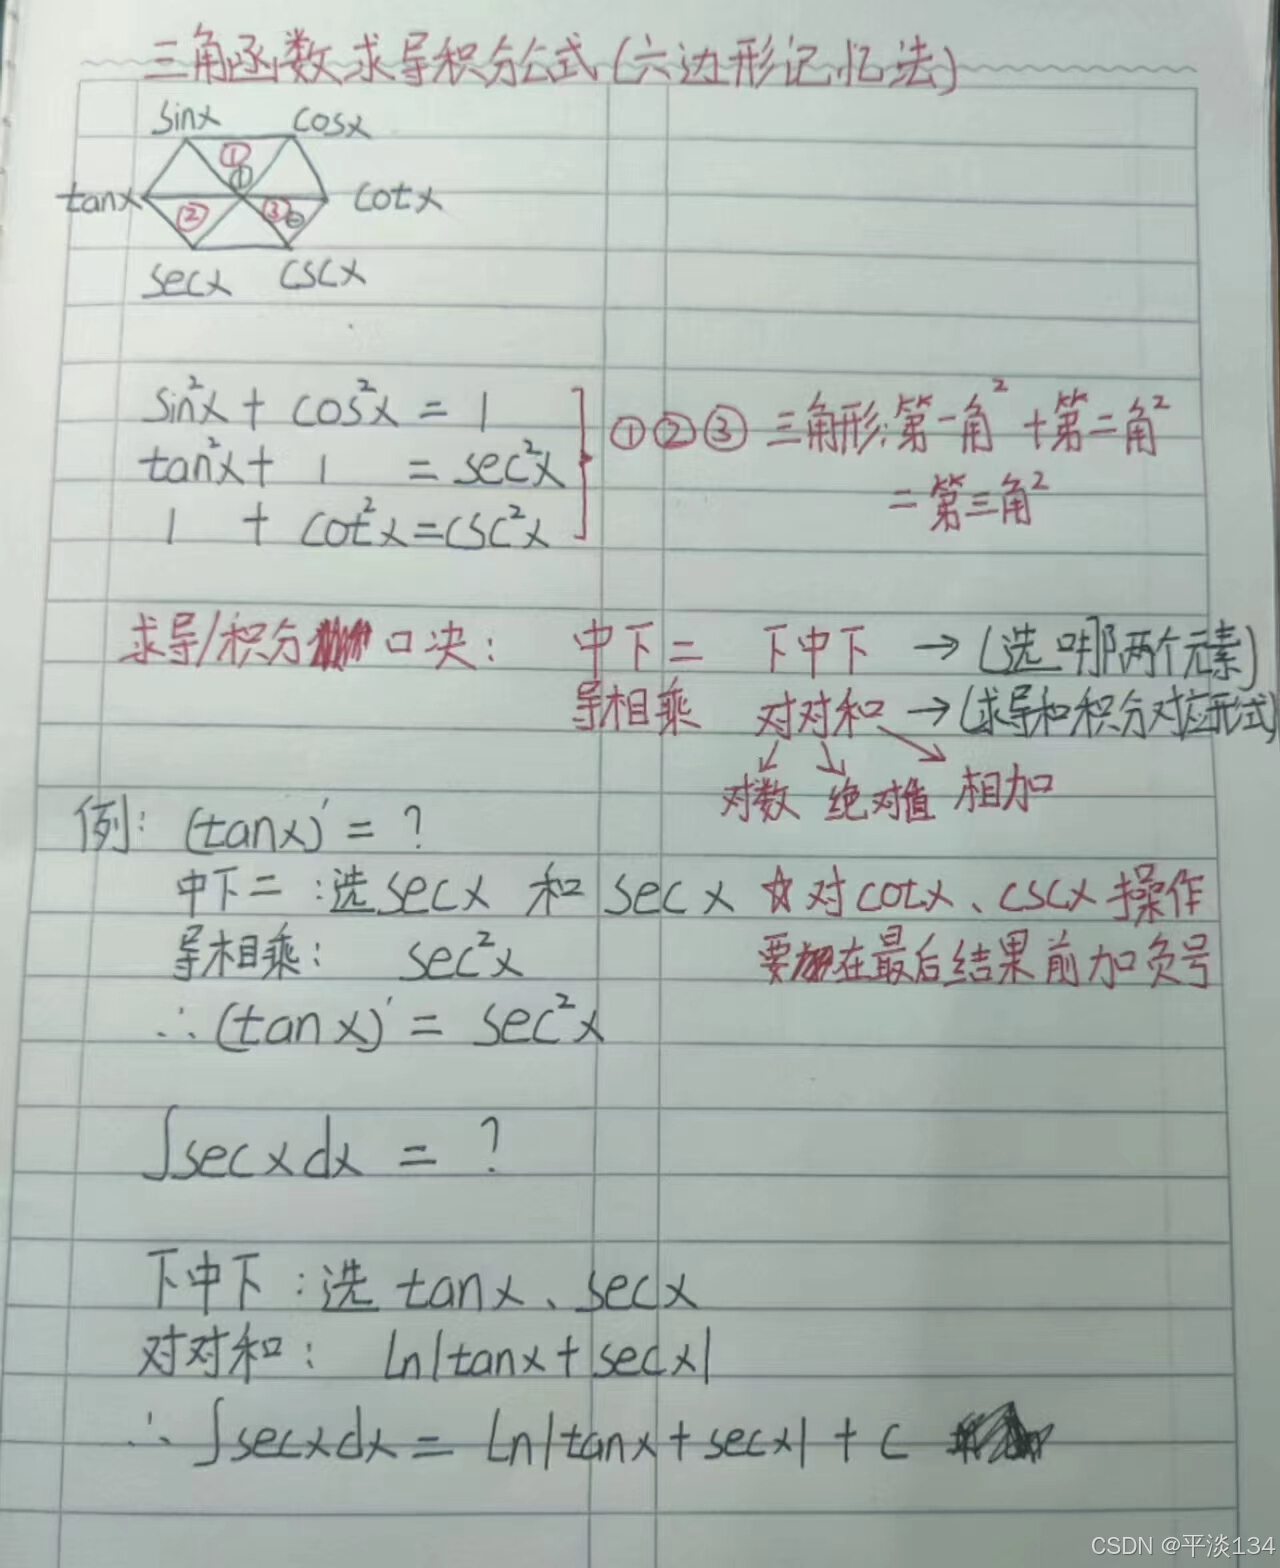 三角函数求导积分公式(六边形记忆法)
sinx cosx
① ①
tanx cotx
② ③
secx cscx
sin²x + cos²x = 1
tan²x + 1 = sec²x
1 + cot²x = csc²x
①②③ 三角形:第一角² + 第二角²
= 第三角²
求导/积分 口决: 中下二 下中下 → (选哪两个元素)
导相乘 对对和 → (求导和积分对应形式)
对数 绝对值 相加
例: (tanx)' = ?
中下二:选secx 和 secx ☆对cotx、cscx操作
导相乘: sec²x 要在最后结果前加负号
∴(tanx)' = sec²x
∫secxdx = ?
下中下:选 tanx、secx
对对和: ln|tanx + secx|
∴ ∫secxdx = ln|tanx + secx| + C
CSDN @平淡134